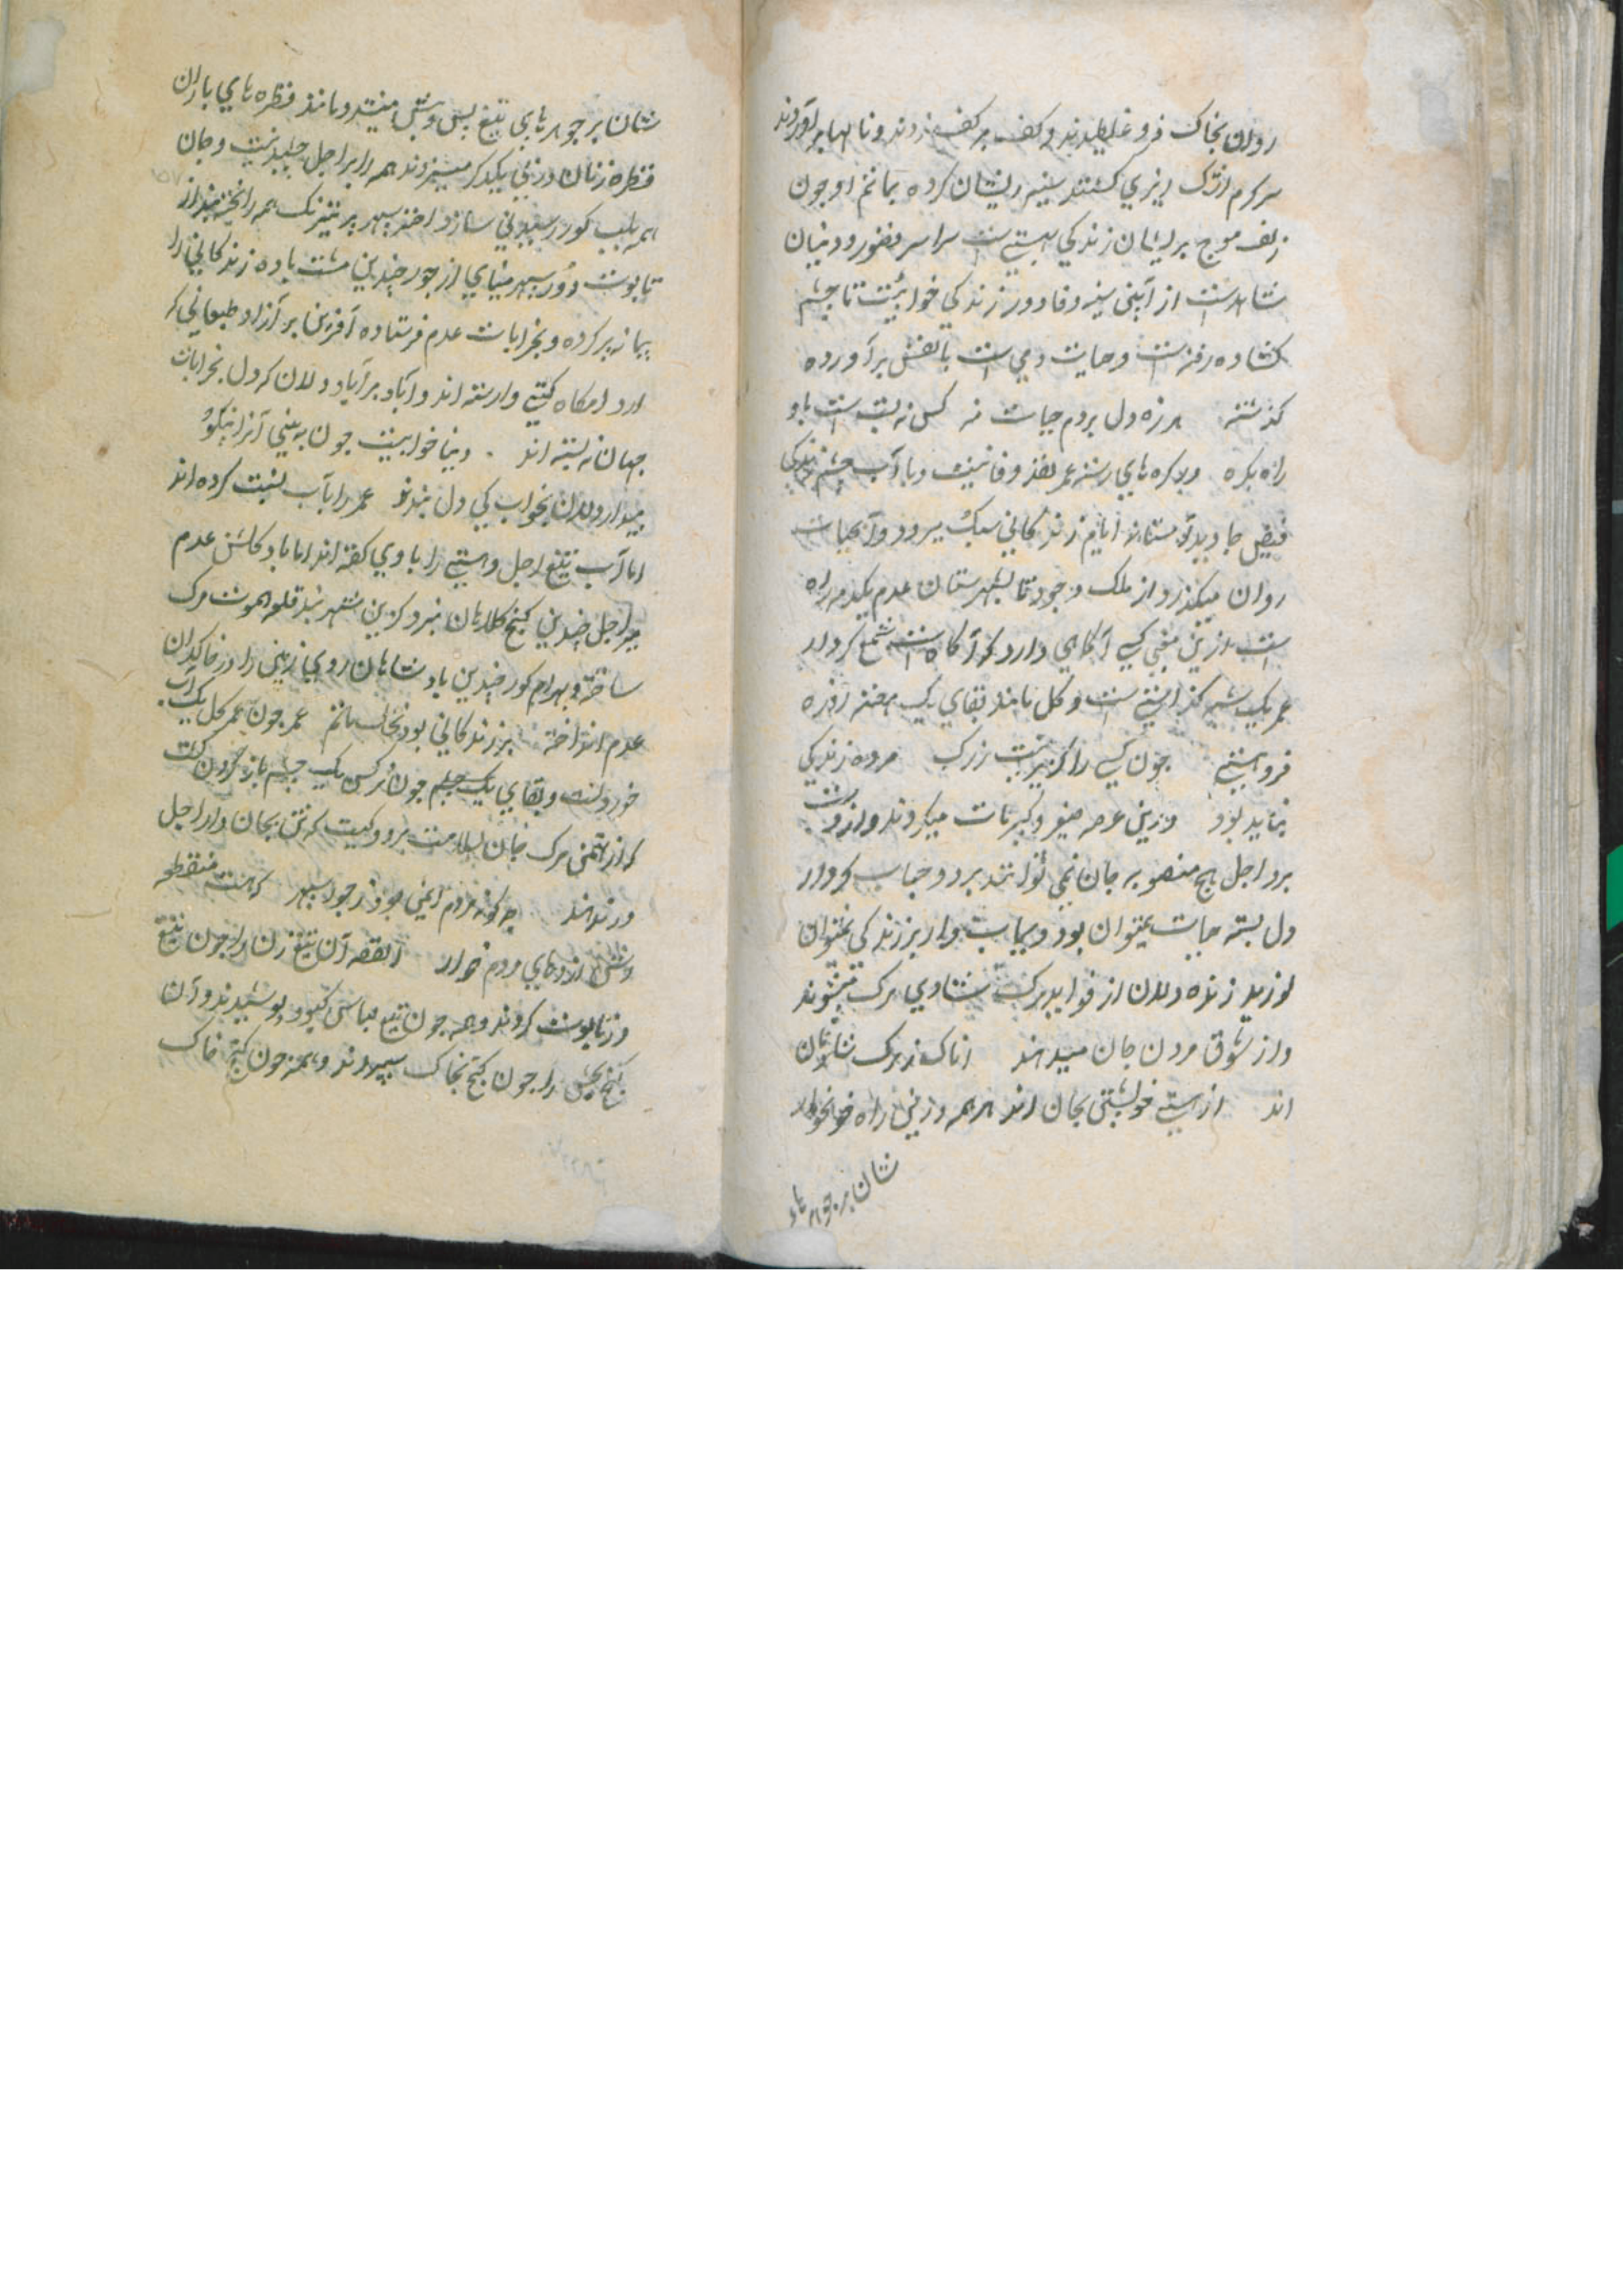 روان بخاک فرو غلطیدند و کف بر کف زدند و نالها برآوردند
سرکرم اشک ریزی کشتند سینه ریشان کرده بماتم او چون
زلف موج پریشان زندکی هستی ست سراسر و دنیان
شاهدست از آیین وفا دور زندکی خوابیست تا چشم
کشاده رفته است و حیات دمی ست تا نفس برآورده
کذشته هرزه دل بردم حیات منه کس نه بست است باد
راه بکره و بر کره های رشته عمر وفا نیست و با آب چشمه زندکی
فیض جاوید نه ایام زندکانی سبک میرود و آبحیات
روان میکذرد از ملک وجود تا بشهرستان عدم یکدم راه
است ازین معنی کسی آکاهی دارد که آکاه است شمع کردار
عمر یک شبه کذاشتنی ست و کل مانند بقای یک هفته
فروهشتنی چون کسی را کزیر نیست ز مرک مرده زندکی
نباید بود درین عرصه صغیر و کبیر مات میکردند و از دست
برد اجل هیچ منصوبه جان نمی توانند برد و حباب کردار
دل بسته حیات نمیتوان بود و سیاب وار بر زندکی نتوان
لرزید زنده دلان از فواید مرک بشادی مرک میشوند
و از شوق مردن جان میدهند اناک ز مرک شادمان
اند از هستی خویشتن بجان اند همه درین راه خونخوار
شان بر جوهرهای
شان بر جوهرهای تیغ پس و پیش میفتند و مانند قطره های باران
قطره زنان در پی یکدکر میریزند همه را بر اجل چیدنیست و جان
همه بلب کور رسیدنی سازد اختر سپهر پر نیرنک همه را تخته
تابوت دور سپهر مینایی از جور چندین مشت باده زندکانی را
پیمانه پر کرده و بخرابات عدم فرستاده آفرین بر آزاد طبعانی که
از دامکاه کیتی وارسته اند و آباد بر آباد دلان که دل بخرابات
جهان نه بسته اند دنیا خوابیست چون به بینی آنرا نیکو
بیدار دلان بخواب کی دل بندند عمر را بآب نسبت کرده اند
اما آب تیغ اجل و هستی را بادی کفته اند اما باد کلشن عدم
اجل چندین کنج کلاهان شهر بند قلعه الموت مرک
ساخته و بهرام کور چندین پادشاهان روی زمین را در خاکدان
عدم انداخته بر زندکانی بود عمر چون عمر کل یک آب
خوردنست و بقای یک چشم چون نرکس یک چشم باز کردن کیست
که از دشمنی مرک جان بسلامت برد و کیست که تن بجان دار اجل
در ندهند چه کونه مردم ایمنی بود ز جور سپهر که هست منطقه
وش اژدهای مردم خوار القصه آن تیغ زن را چون تیغ
در تابوت کردند و همه چون تیغ لباس کبود پوشیدند و آن
کنج بخش را چون کنج بخاک سپردند و همه چون کنج خاک